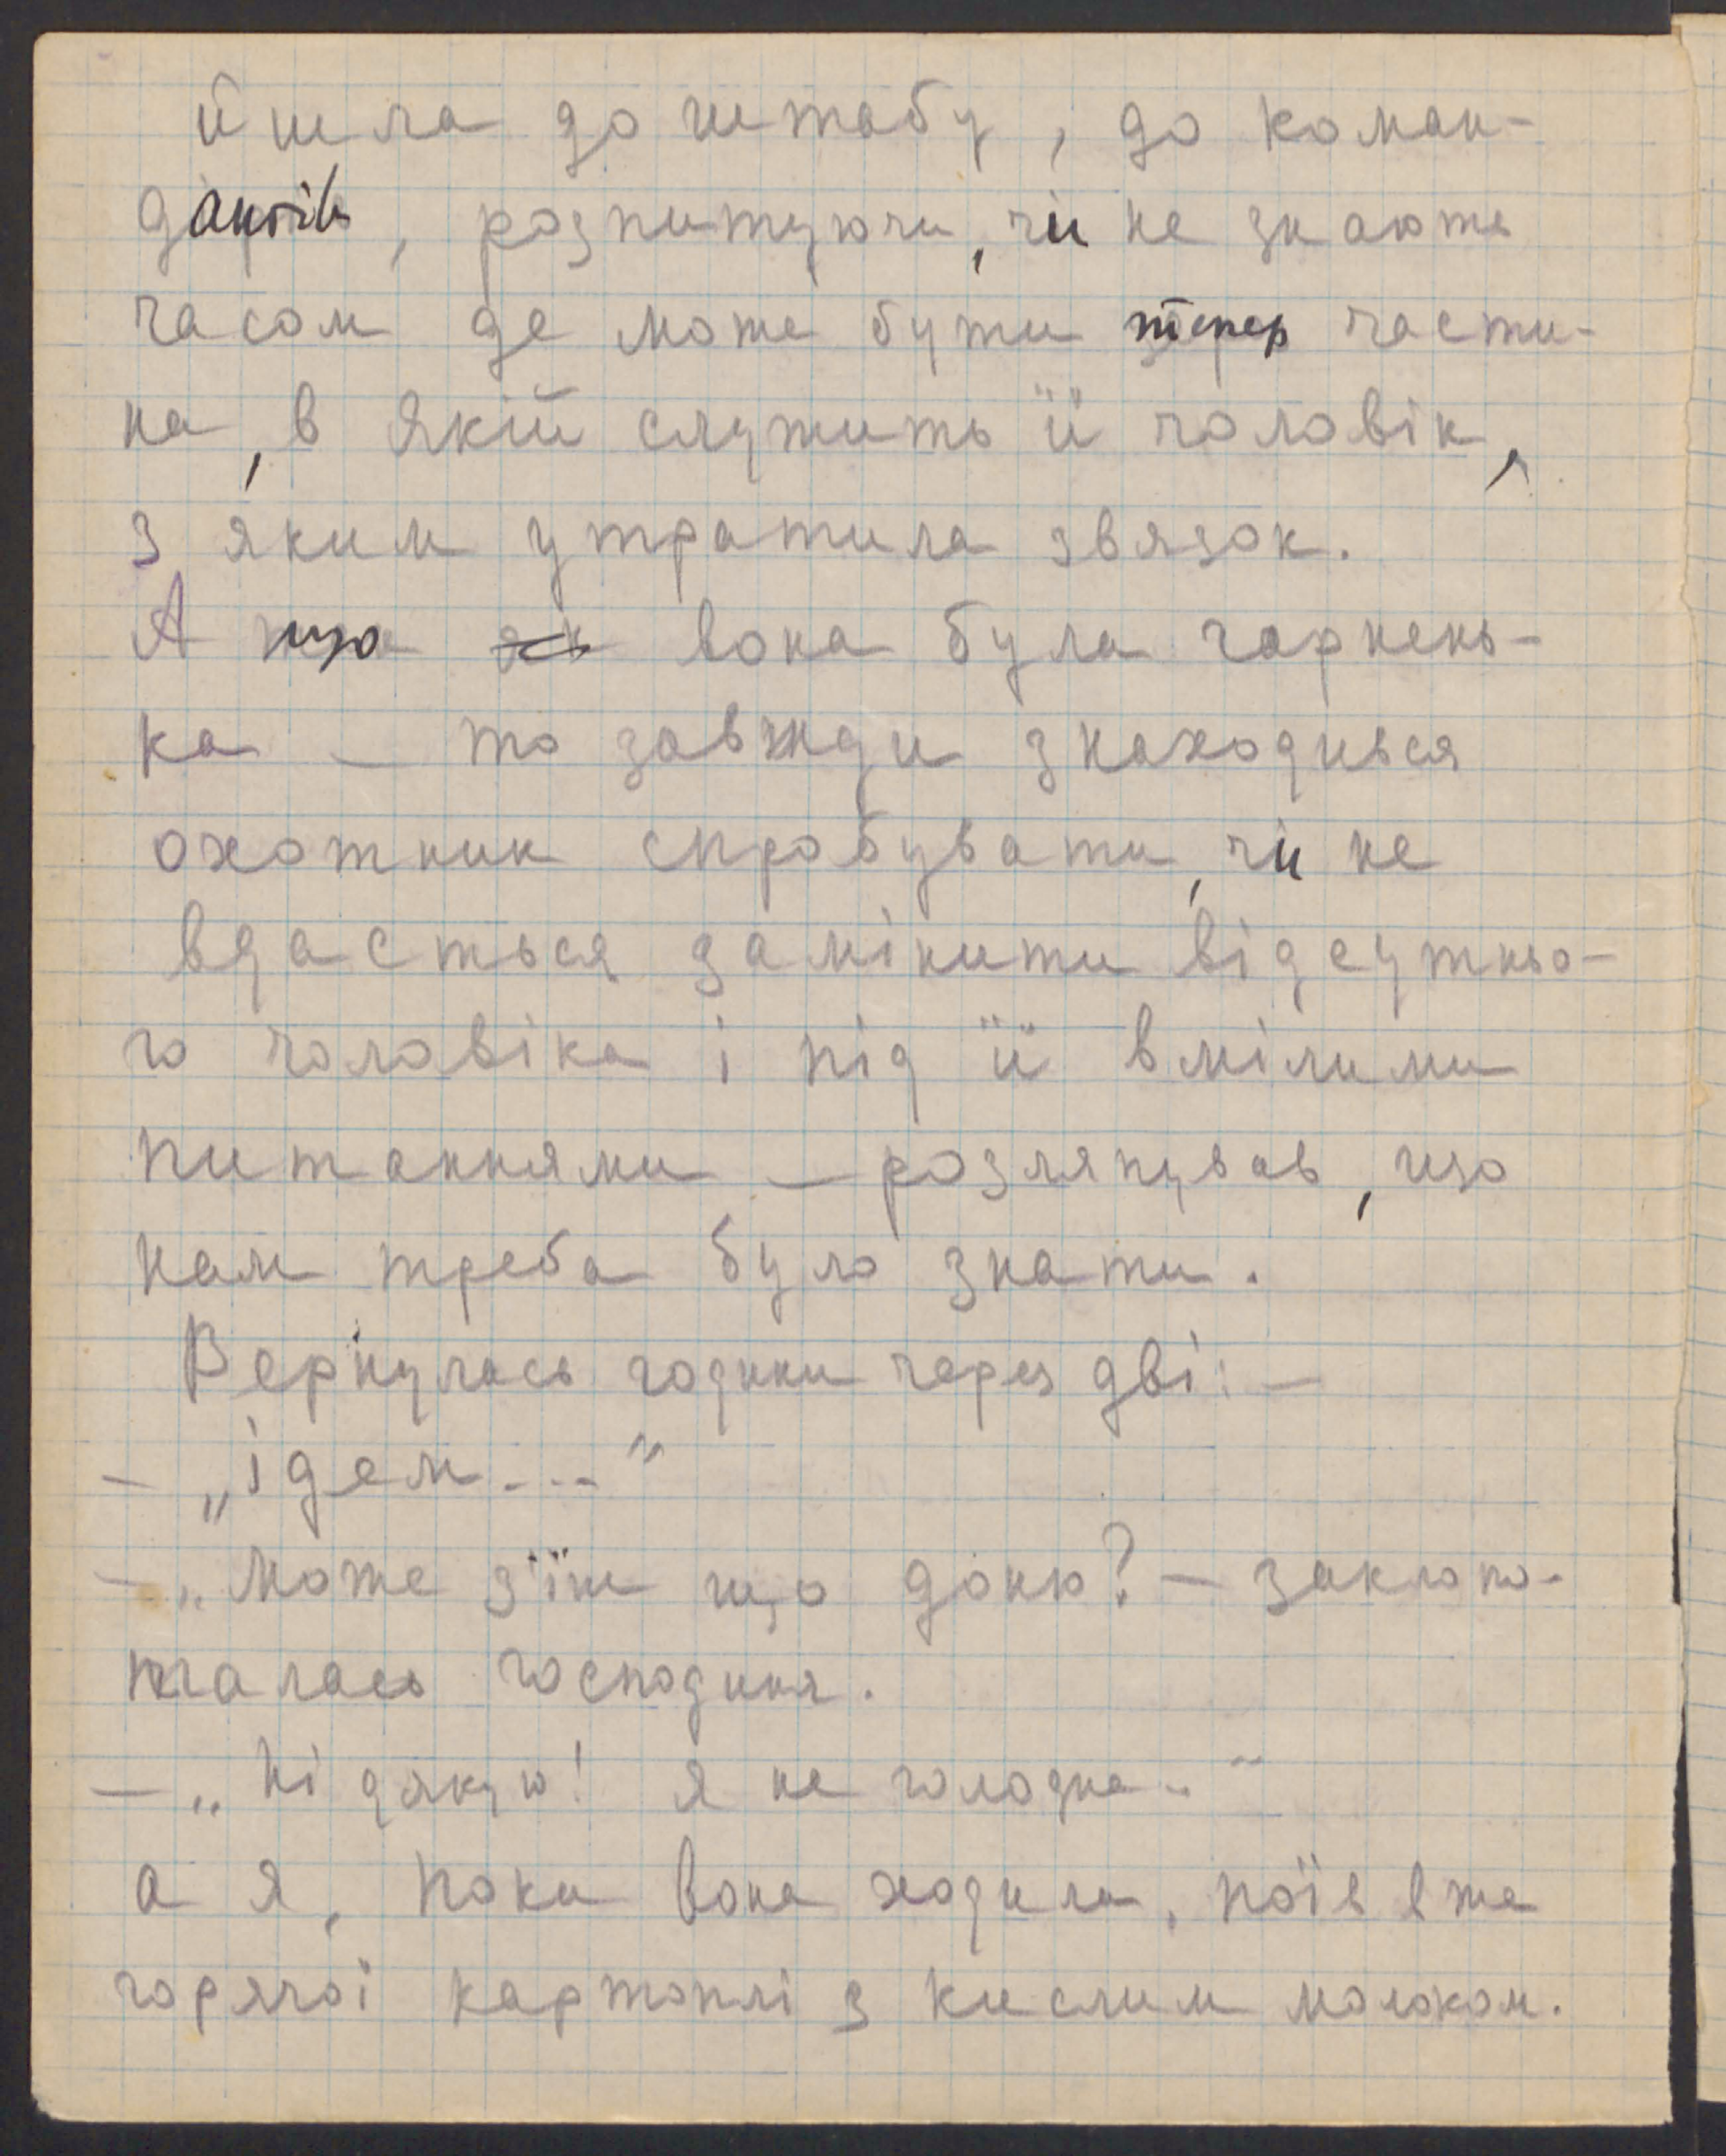 йшла до штабу, до коман-
дантів, розпитуючи, чи не знають
часом де може бути тепер части-
на, в якій служить її чоловік,
з яким утратила звязок.
А що вона була гарнень-
ка – то завжди знаходився
охотник спробувати, чи не
вдасться замінити відсутньо-
го чоловіка і під її вмілими
питаннями – розляпував, що
нам треба було знати.
Вернулась години через дві: –
– „ідем...."
– „Може з'їш що доню? – заклопо-
талась господиня.
– „Ні дякую! я не голодна.."
а я, поки вона ходила, поїв вже
горячої картоплі з кислим молоком.